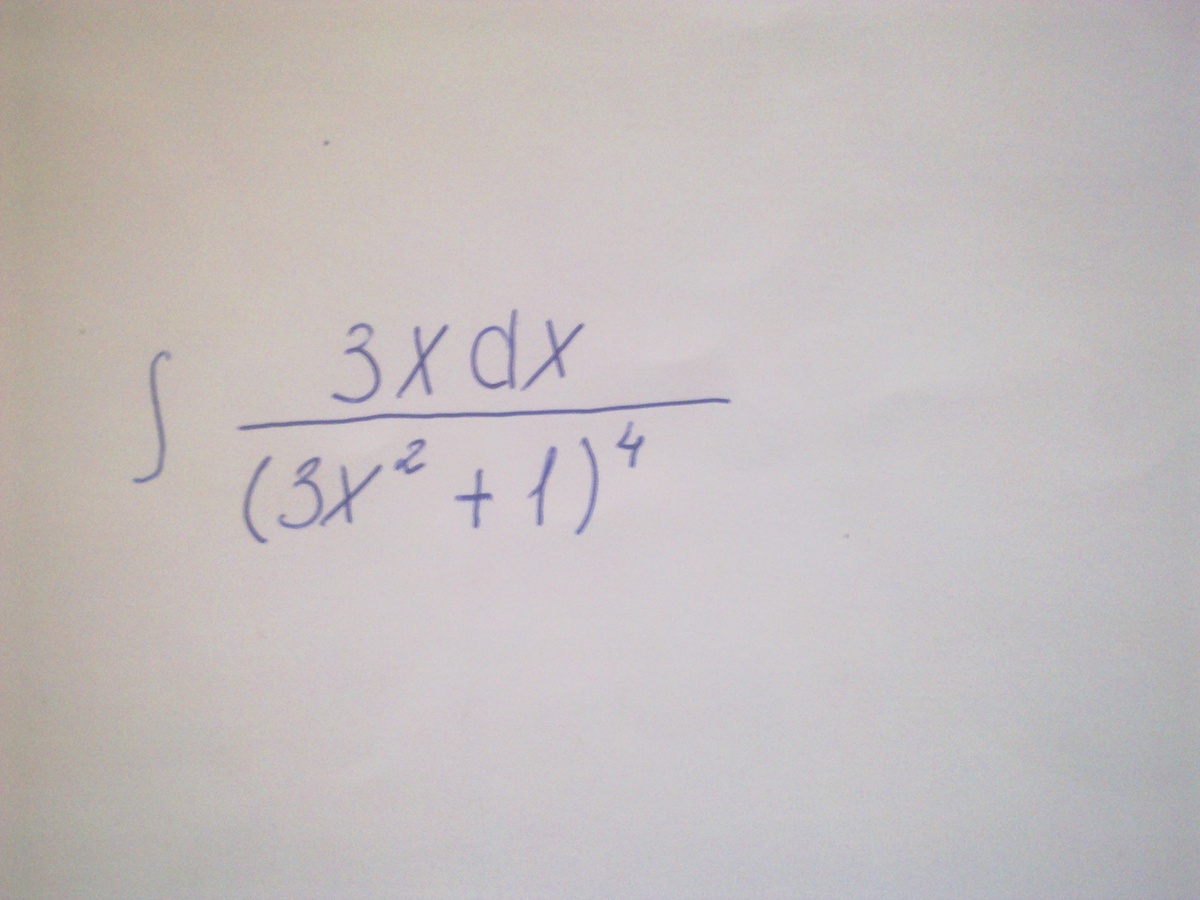 ∫ 3x dx
(3x² + 1)⁴